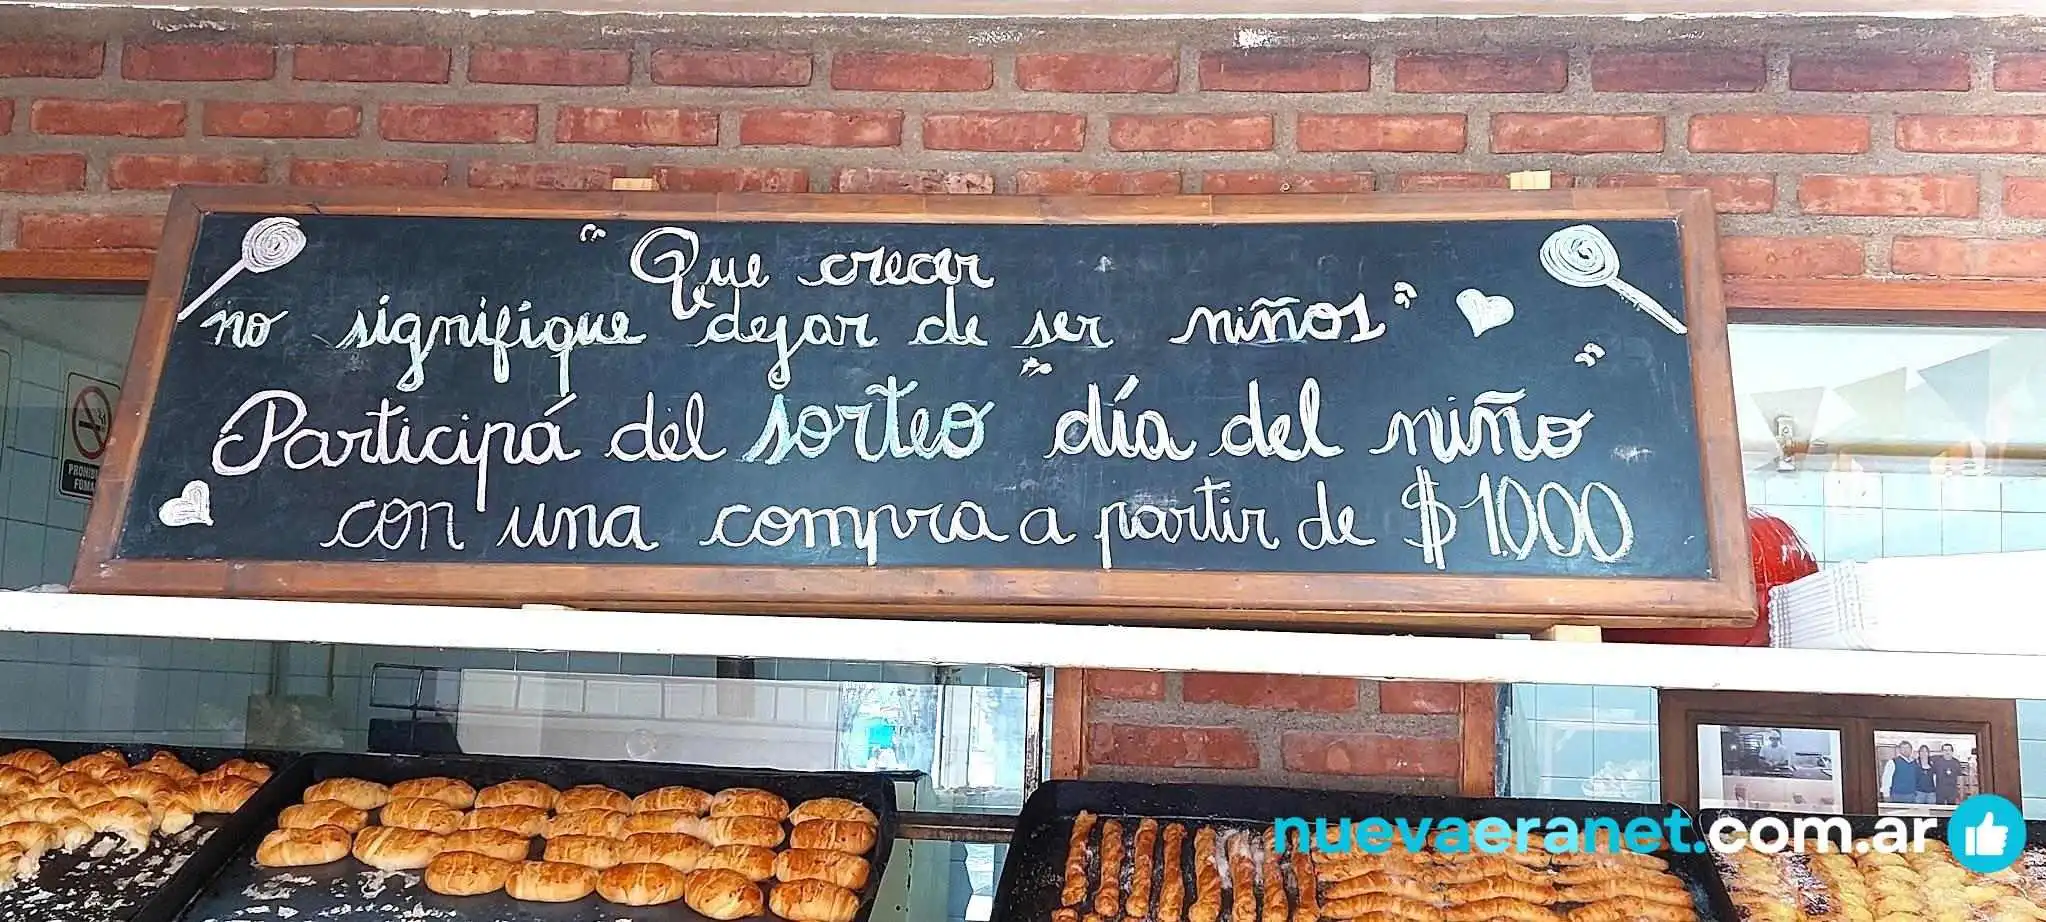 "Que crecer
no signifique dejar de ser niños"
Participá del sorteo "día del niño"
con una compra a partir de $1000
PROHIBIDO
FUMAR
nuevaeranet.com.ar